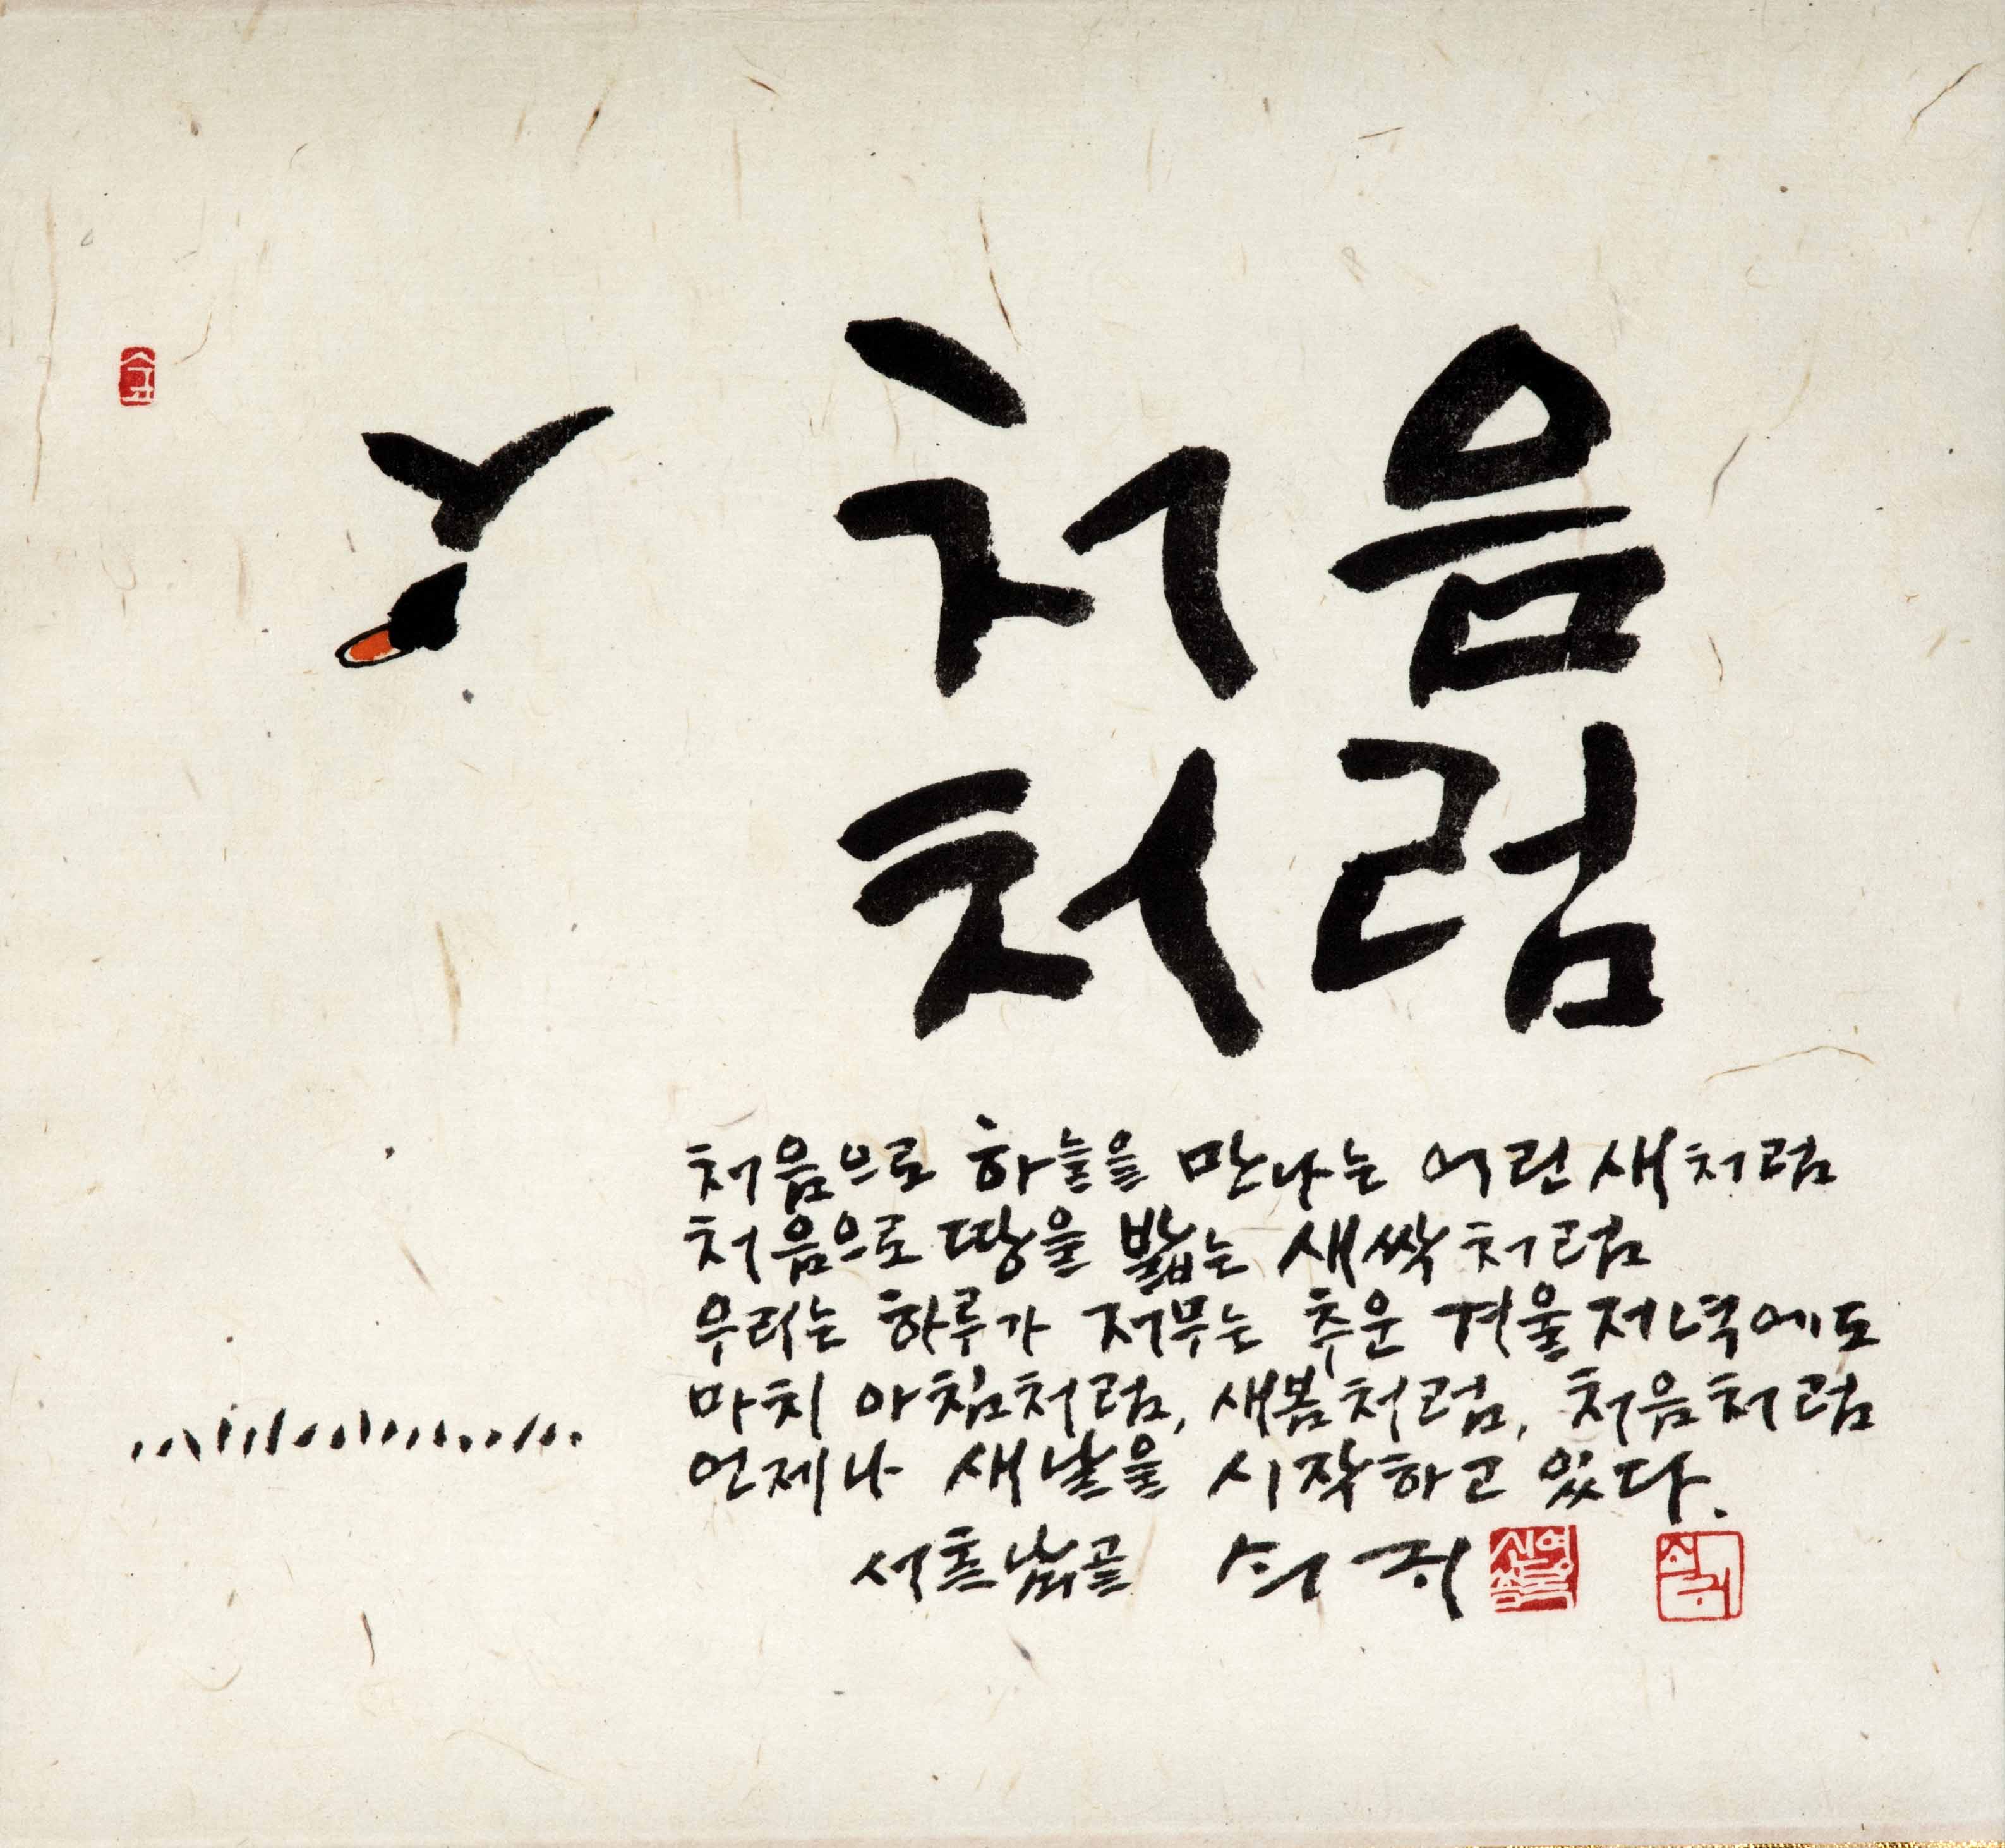 처음
처럼
처음으로 하늘을 만나는 어린 새처럼
처음으로 땅을 밟는 새싹처럼
우리는 하루가 저무는 추운 겨울 저녁에도
마치 아침처럼, 새봄처럼, 처음처럼
언제나 새날을 시작하고 있다.